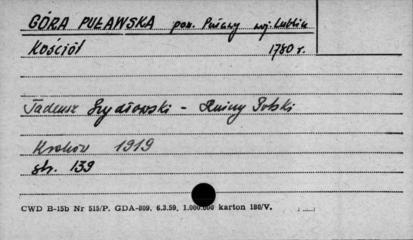 GÓRA PUŁAWSKA pow. Puławy woj. Lublin
Kościół 1780 r.
Tadeusz Szydłowski - Ruiny Polski
Kraków 1919
str. 139
CWD B-15b Nr 515/P. GDA-809. 6.3.59. 1.000.000 karton 180/V.